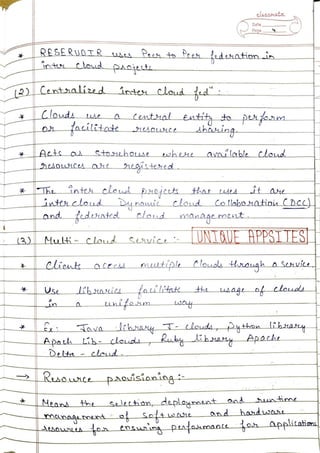 classmate
Date
Page 4
* RESERVOIR uses Peer to Peer federation in
inter cloud projects
(2) Centralized inter cloud fedⁿ :
* Clouds use a central entity to perform
or facilitate resource sharing.
* Acts as storehouse where available cloud
resources are registered.
* The inter cloud projects that uses it are
intercloud Dynamic cloud Collaboration (DCC)
and federated cloud management.
(3) Multi - Cloud Service :- UNIQUE APPSITES
* Clients access multiple Clouds through a service.
* Use libraries facilitate the usage of clouds
in a uniform way
* Ex: Java library J- clouds, Python library
Apach Lib- clouds, Ruby library Apache
Delta - cloud.
→ Resource provisioning :-
* Means the selection, deployment and runtime
management of software and hardware
resources for ensuring performance for applications